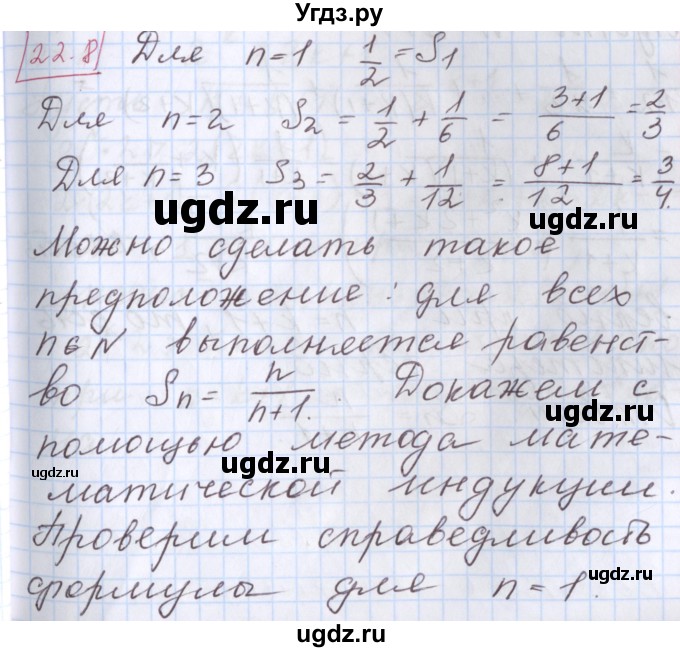 Угдз.ру
22.8 Для n=1 1/2 = S1
Для n=2 S2 = 1/2 + 1/6 = 3+1/6 = 2/3
Для n=3 S3 = 2/3 + 1/12 = 8+1/12 = 3/4.
ugdz.ru
ugdz.ru
Можно сделать такое
предположение: для всех
n∈N выполняется равенст-
во Sn = n/n+1. Докажем с
ugdz.ru
помощью метода мате-
ugdz.ru
ugdz.ru
матической индукции.
Проверим справедливость
формулы для n=1.
ugdz.ru
ugdz.ru